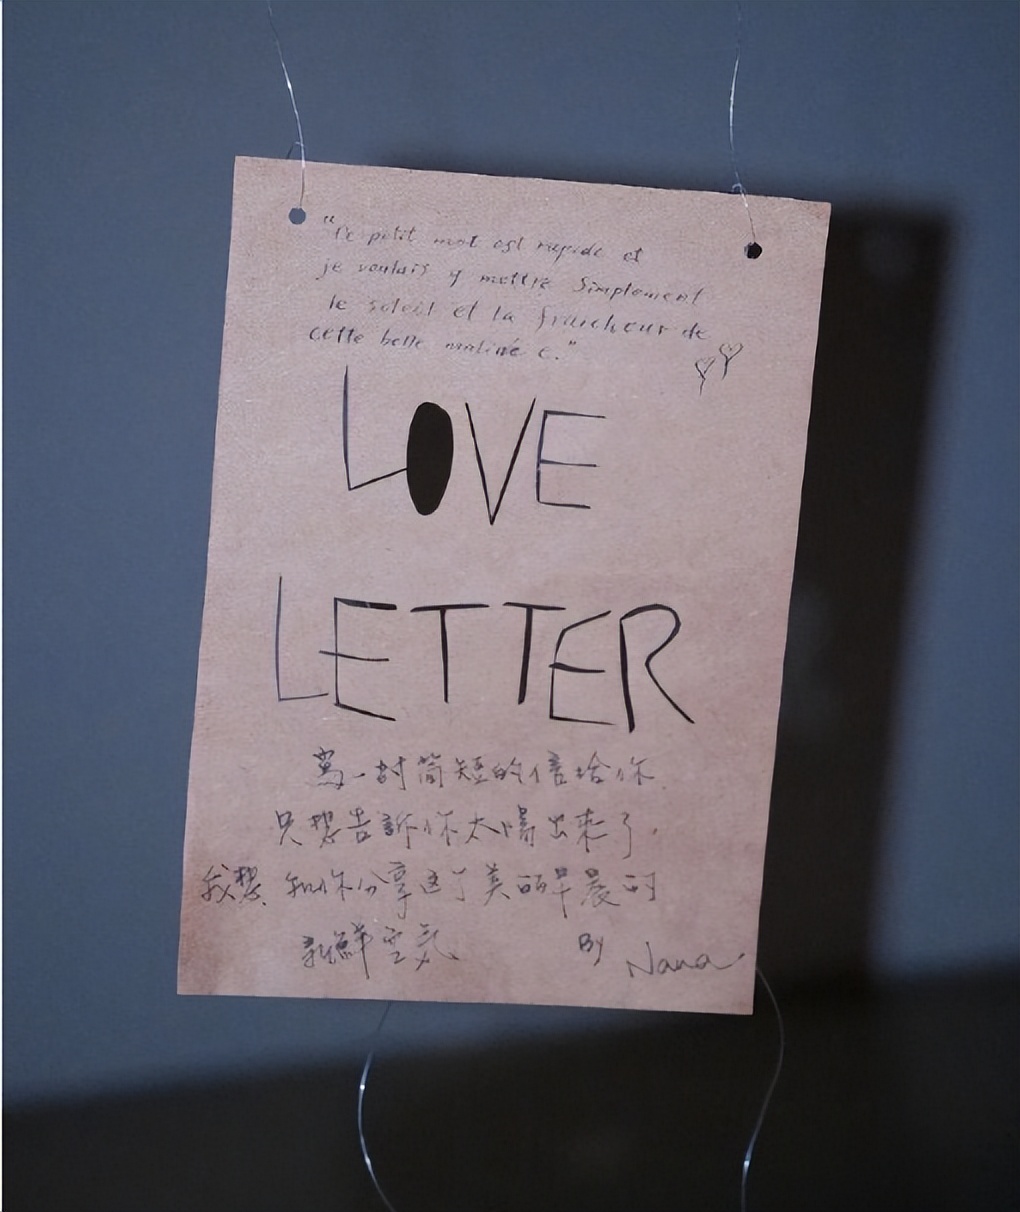 "Ce petit mot est rapide et
je voulais y mettre simplement
le soleil et la fraicheur de
cette belle matinée e."
LOVE
LETTER
寫一封簡短的信給你
只想告訴你太陽出來了.
我想和你分享這个美丽早晨的
新鮮空氣
By Nana